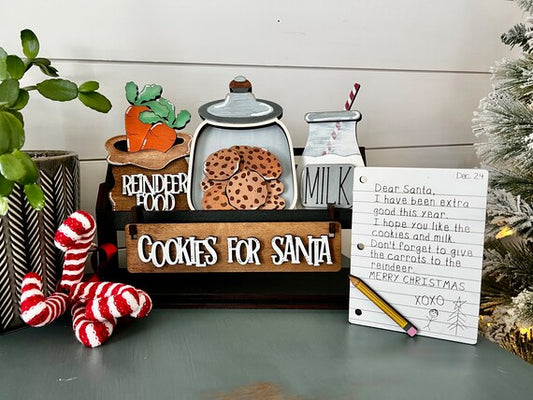 REINDEER
FOOD
MILK
COOKIES FOR SANTA
Dec. 24
Dear Santa,
I have been extra
good this year.
I hope you like the
cookies and milk.
Don't forget to give
the carrots to the
reindeer.
MERRY CHRISTMAS
XOXO